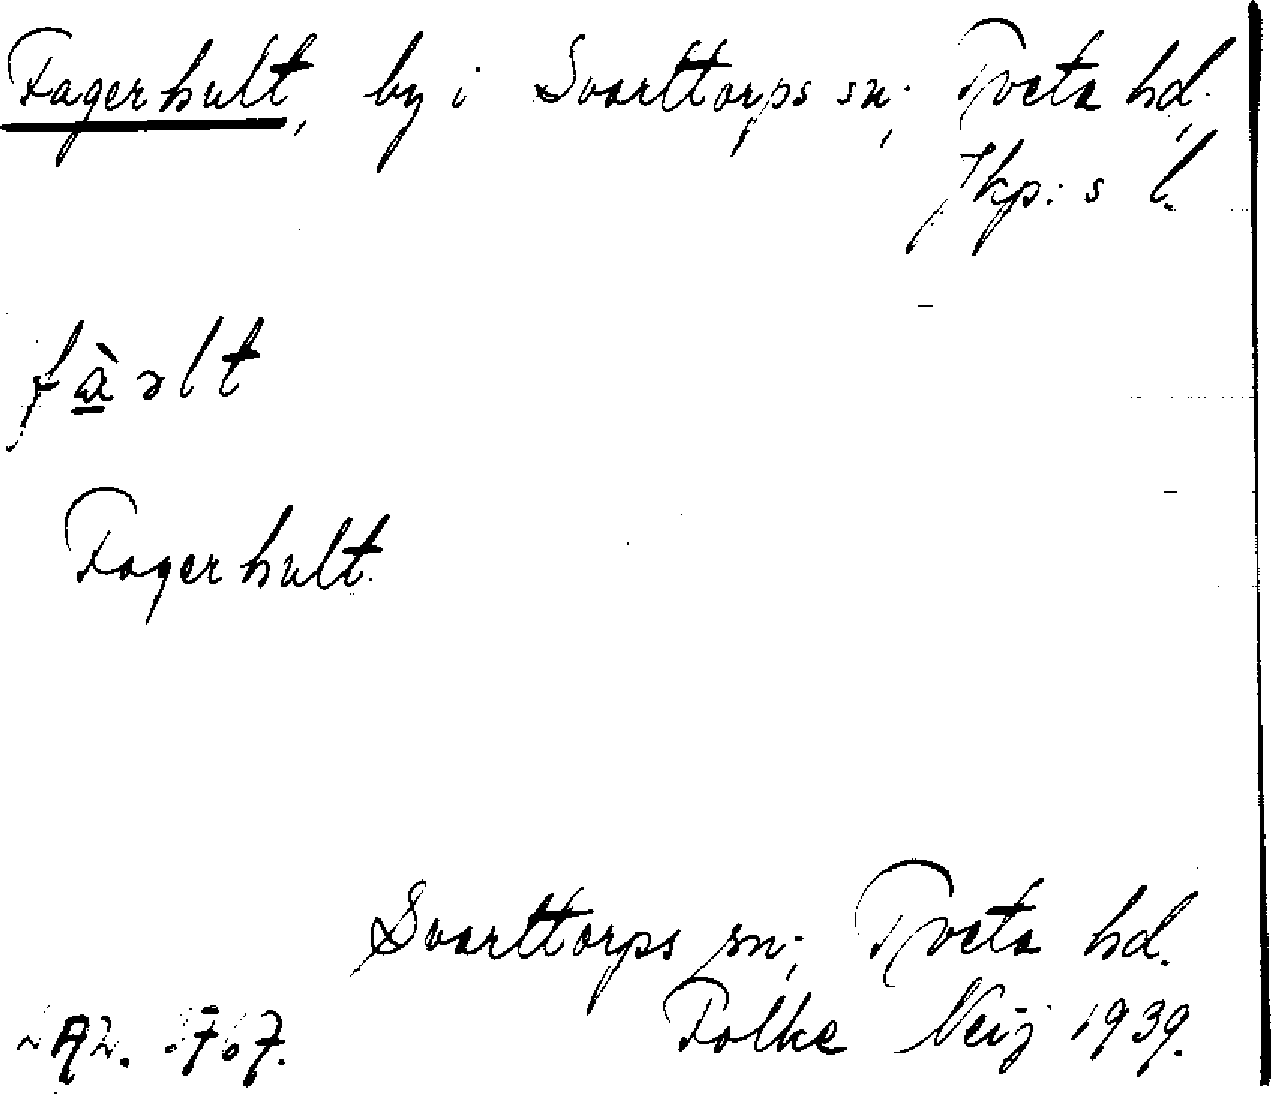 Fagerhult, by i Svarttorps sn; Tveta hd;
Jkp:s l.
fàəlt
Fagerhult.
Svarttorps sn; Tveta hd.
Folke Neij 1939.